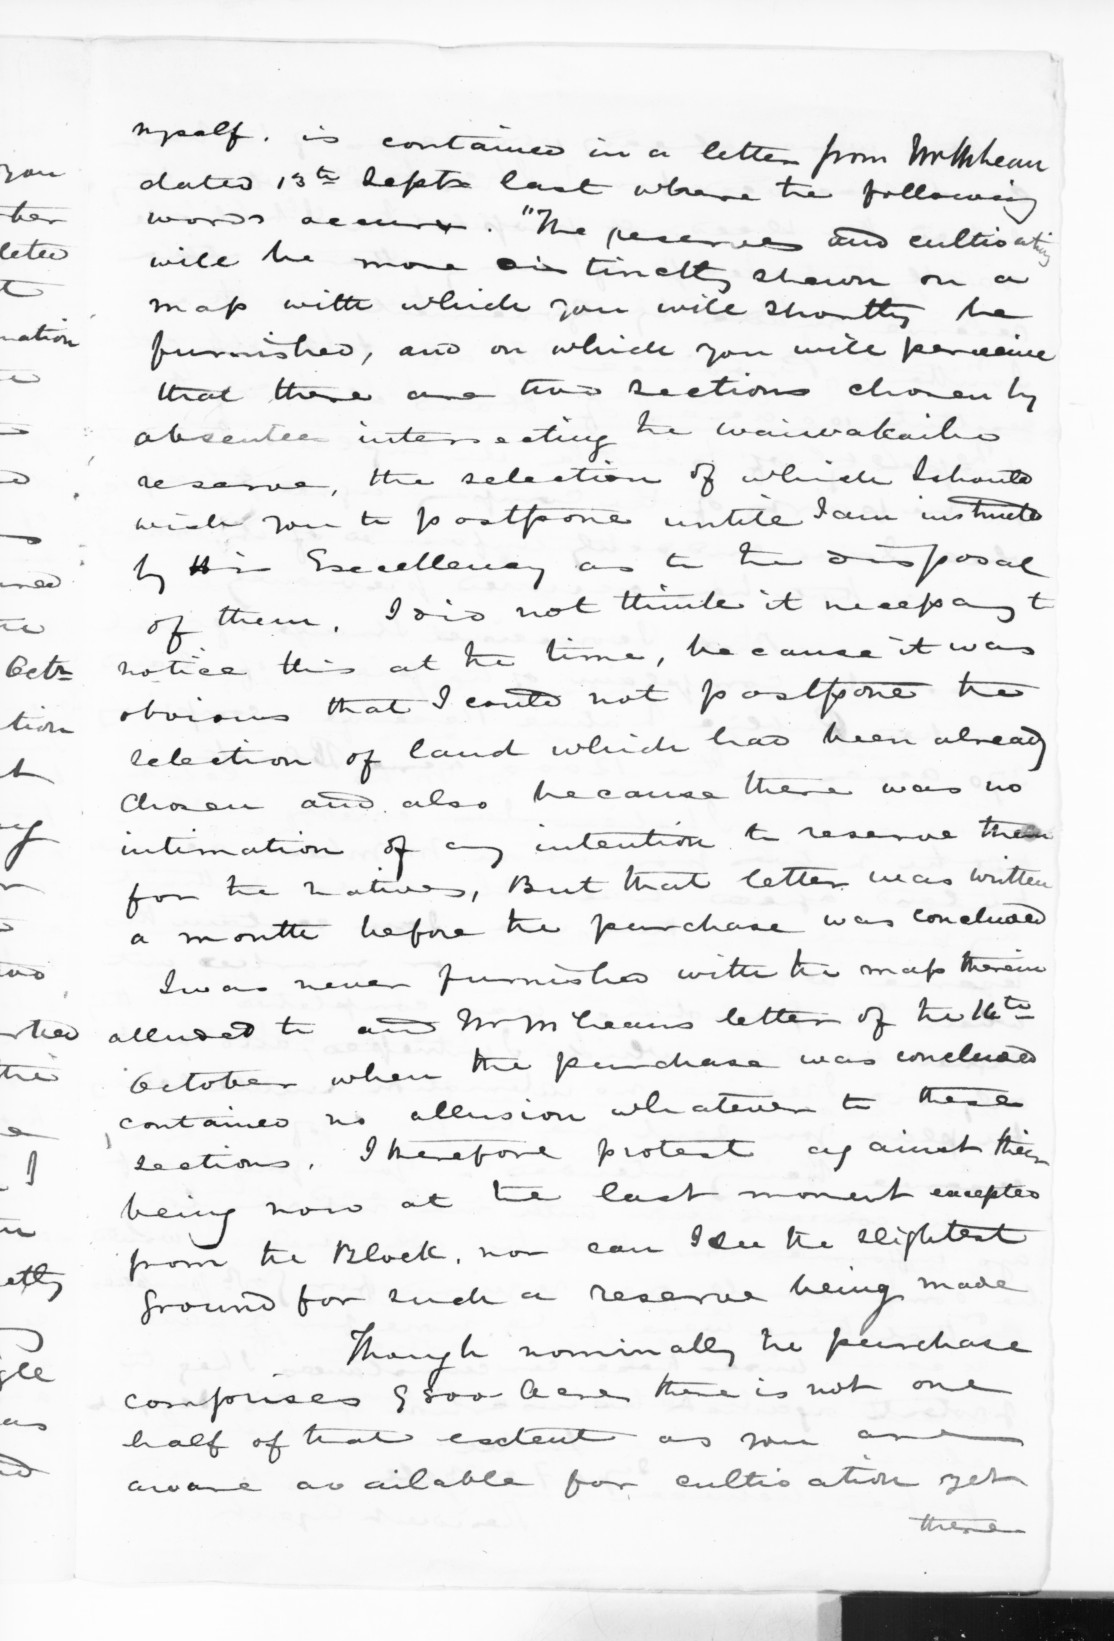 myself. is contained in a letter from Mr McLean
dated 13th Septr last where the following
words occur. "The reserves and cultivating
will be more distinctly shewn on a
map with which you will shortly be
furnished, and on which you will perceive
that there are two sections chosen by
absentees intersecting the waiwakaiho
reserve, the selection of which I should
wish you to postpone until I am instructed
by His Excellency as to the disposal
of them. I did not think it necessary to
notice this at the time, because it was
obvious that I could not postpone the
selection of land which had been already
chosen and also because there was no
intimation of any intention to reserve them
for the Natives, But that letter was written
a month before the purchase was concluded
I was never furnished with the map therein
alluded to and Mr McLeans letter of the 16th
October when the purchase was concluded
contained no allusion whatever to these
sections. I therefore protest against their
being now at the last moment excepted
from the Block, nor can I see the slightest
Ground for such a reserve being made
Though nominally the purchase
comprises 9800 Acres there is not one
half of that extent as you are
aware available for cultivation yet
there
you
ther
leted
nation
Octr
tion